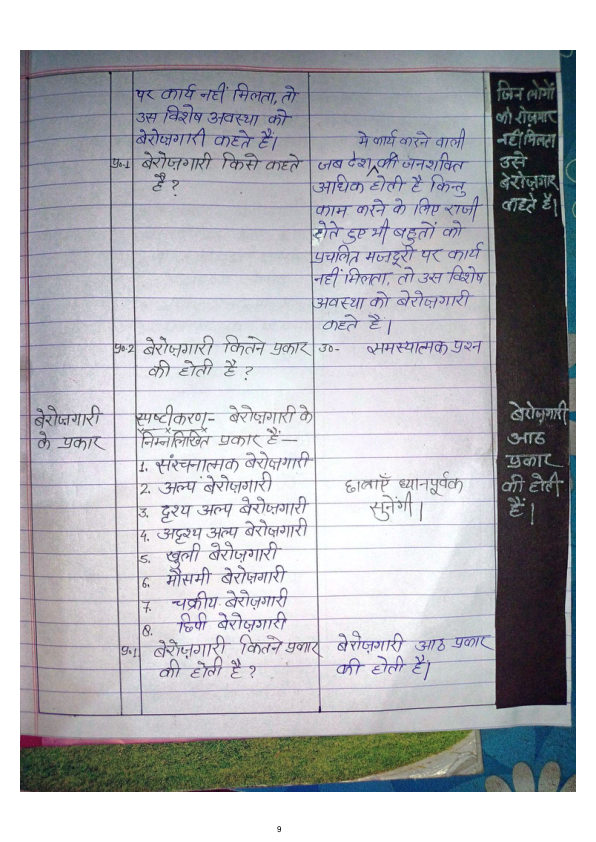 पर कार्य नहीं मिलता, तो
उस विशेष अवस्था को
बेरोज़गारी कहते हैं।
प्र०-1 बेरोज़गारी किसे कहते
है ?
मे कार्य करने वाली
जब देश की जनशक्ति
अधिक होती है किन्तु
काम करने के लिए राजी
होते हुए भी बहुतों को
प्रचलित मजदूरी पर कार्य
नहीं मिलता, तो उस विशेष
अवस्था को बेरोज़गारी
कहते हैं।
जिन लोगों
को रोज़गार
नहीं मिलता
उसे
बेरोज़गार
कहते हैं।
प्र०-2 बेरोज़गारी कितने प्रकार
की होती है ?
उ०- समस्यात्मक प्रश्न
बेरोज़गारी
के प्रकार
स्पष्टीकरण- बेरोज़गारी के
निम्नलिखित प्रकार हैं—
1. संरचनात्मक बेरोज़गारी
2. अल्प बेरोज़गारी
3. दृश्य अल्प बेरोज़गारी
4. अदृश्य अल्प बेरोज़गारी
5. खुली बेरोज़गारी
6. मौसमी बेरोज़गारी
7. चक्रीय बेरोज़गारी
8. छिपी बेरोज़गारी
छात्राएँ ध्यानपूर्वक
सुनेंगी।
बेरोज़गारी
आठ
प्रकार
की होती
हैं।
प्र०1 बेरोज़गारी कितने प्रकार
की होती है ?
बेरोज़गारी आठ प्रकार
की होती हैं।
9